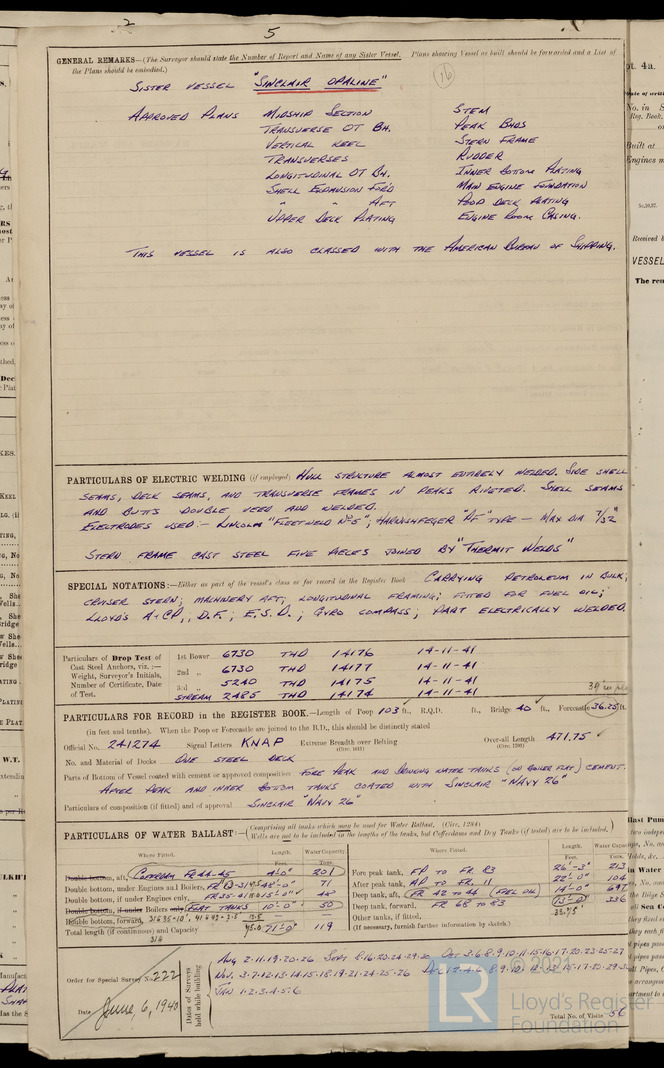 2
5
GENERAL REMARKS—(The Surveyor should state the Number of Report and Name of any Sister Vessel. Plans showing Vessel as built should be forwarded and a List of
the Plans should be embodied.)
16
SISTER VESSEL "SINCLAIR OPALINE"
APPROVED PLANS MIDSHIP SECTION STEM
TRANSVERSE OT BH. PEAK BHDS
VERTICAL KEEL STERN FRAME
TRANSVERSES RUDDER
LONGITUDINAL OT BH. INNER BOTTOM PLATING
SHELL EXPANSION FORD MAIN ENGINE FOUNDATION
" " AFT POOP DECK PLATING
UPPER DECK PLATING ENGINE ROOM CASING.
THIS VESSEL IS ALSO CLASSED WITH THE AMERICAN BUREAU OF SHIPPING.
PARTICULARS OF ELECTRIC WELDING (if employed) HULL STRUCTURE ALMOST ENTIRELY WELDED. SIDE SHELL
SEAMS, DECK SEAMS, AND TRANSVERSE FRAMES IN PEAKS RIVETED. SHELL SEAMS
AND BUTTS DOUBLE VEED AND WELDED.
ELECTRODES USED:— LINCOLN "FLEETWELD No 5"; HARNISHFEGER "PF" TYPE — MAX DIA 7/32"
STERN FRAME CAST STEEL FIVE PIECES JOINED BY "THERMIT WELDS"
SPECIAL NOTATIONS:—Either as part of the vessel's class or for record in the Register Book CARRYING PETROLEUM IN BULK;
CRUISER STERN; MACHINERY AFT; LONGITUDINAL FRAMING; FITTED FOR FUEL OIL;
LLOYDS A & CP.; D.F.; E.S.D.; GYRO COMPASS; PART ELECTRICALLY WELDED.
Particulars of Drop Test of 1st Bower 6730 THD 14176 14-11-41
Cast Steel Anchors, viz.:— 2nd " 6730 THD 14177 14-11-41
Weight, Surveyor's Initials, 3rd " 5240 THD 14175 14-11-41
Number of Certificate, Date
of Test. STREAM 2485 THD 14174 14-11-41
PARTICULARS FOR RECORD in the REGISTER BOOK.—Length of Poop 103 ft., R.Q.D. ft., Bridge 40 ft., Forecastle 36.25 ft.
(in feet and tenths). When the Poop or Forecastle are joined to the B.D., this should be distinctly stated
Official No. 241274 Signal Letters KNAP Extreme Breadth over Belting Over-all Length 471.75
No. and Material of Decks ONE STEEL DECK
Parts of Bottom of Vessel coated with cement or approved composition FORE PEAK AND DRINKING WATER TANKS (ON BOILER FLAT) CEMENT.
AFTER PEAK AND INNER BOTTOM TANKS COATED WITH SINCLAIR "NAVY 26"
Particulars of composition (if fitted) and of approval SINCLAIR "NAVY 26"
PARTICULARS OF WATER BALLAST:— (Comprising all tanks which may be used for Water Ballast. (Circ. 1284)
Wells are not to be included in the lengths of the tanks, but Cofferdams and Dry Tanks (if tested) are to be included.)
Where Fitted. Length. Water Capacity. Where Fitted. Length. Water Capacity
Feet. Tons Feet. Tons
Double bottom, aft, COFFERDAM FR 44-45 4'-0" 201 Fore peak tank, FP TO FR. 83 26'-3" 213
Double bottom, under Engines and Boilers, 71 After peak tank, AP TO FR. 11 22'-0" 104
Double bottom, if under Engines only, Deep tank, aft, FR 42 TO 44 (FUEL OIL) 14'-0" 697
Double bottom, if under Boilers only, FLAT TANKS 10'-0" 50 Deep tank, forward, FR 68 TO 83 336
Double bottom, forward, Other tanks, if fitted, 33.75
Total length (if continuous) and Capacity 71'-0" 119 (If necessary, furnish further information by sketch.)
314
Order for Special Survey No. 222
Date June 6, 1940
Dates of Surveys held while building
AUG 2-11-19-20-26 SEPT 8-16-20-24-29-30 OCT 3-6-8-9-10-11-15-16-17-20-23-25-27
NOV. 3-7-12-13-14-15-18-19-21-24-25-26
JAN 1-2-3-4-5-6
Total No. of Visits 56
© 2021
LR
Lloyd's Register
Foundation